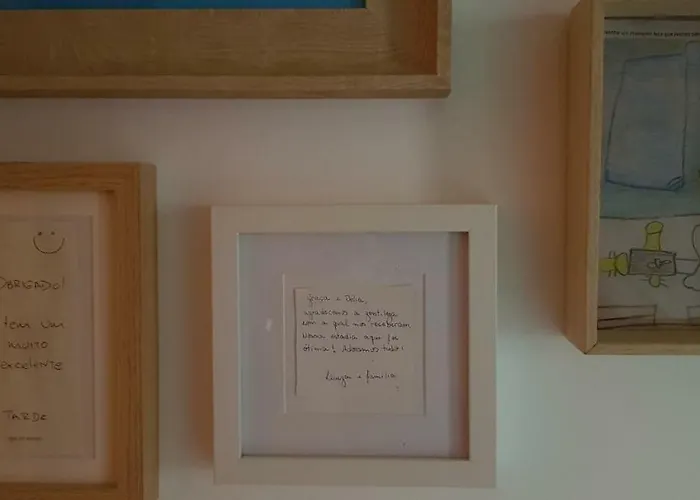 OBRIGADO!
tem um
muito
excelente
TARDE
Graça e Délia,
agradecemos a gentileza
com a qual nos receberam
Nossa estadia aqui foi
ótima! Adoramos tudo!
e família